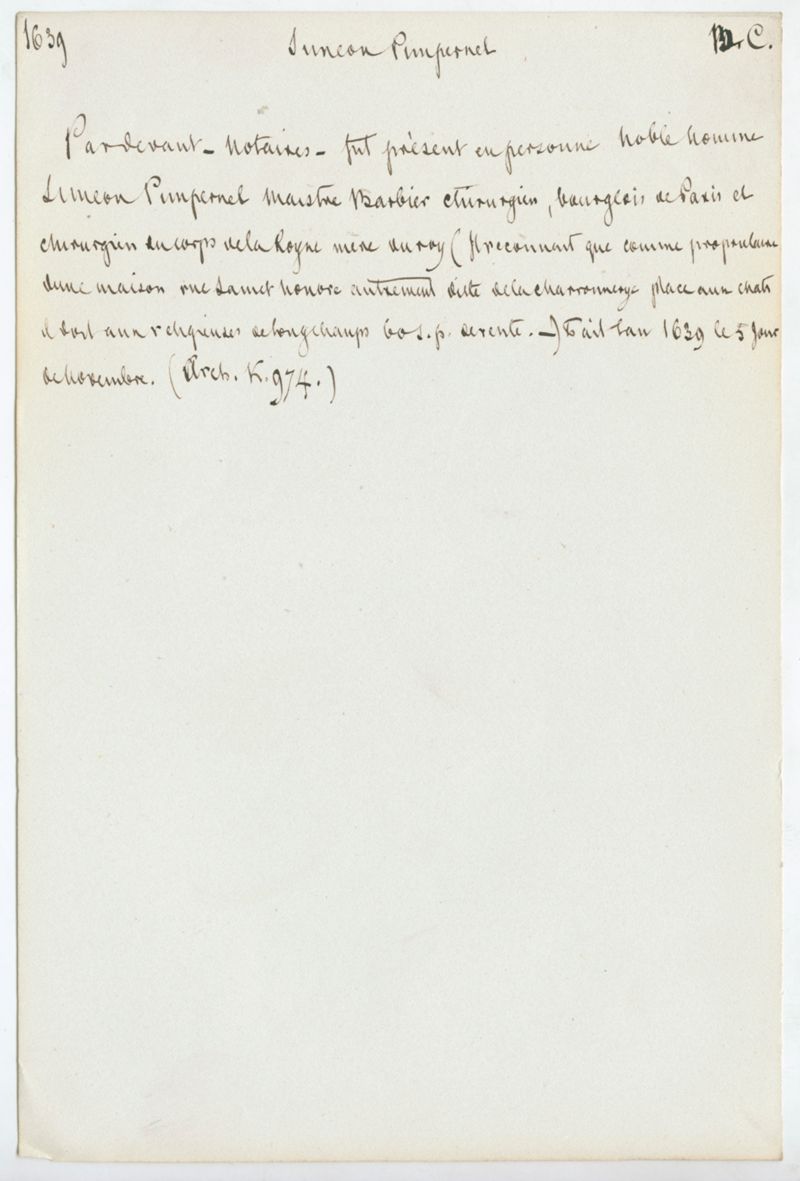 1639 Simeon Pimpernel B. C.
Pardevant - Notaires - fut présent en personne Noble homme
Simeon Pimpernel Maistre Barbier chirurgien, bourgeois de Paris et
chirurgien du corps de la Royne mère du roy (Il reconnait que comme propriétaire
dune maison rue Sainct honore autrement ditte de la charronnerye place aux chats
il doit aux religieuses de Longchamps 60 s. p. de rente. -) Fait lan 1639 le 5 Jour
de Novembre. (Arch. K. 974.)